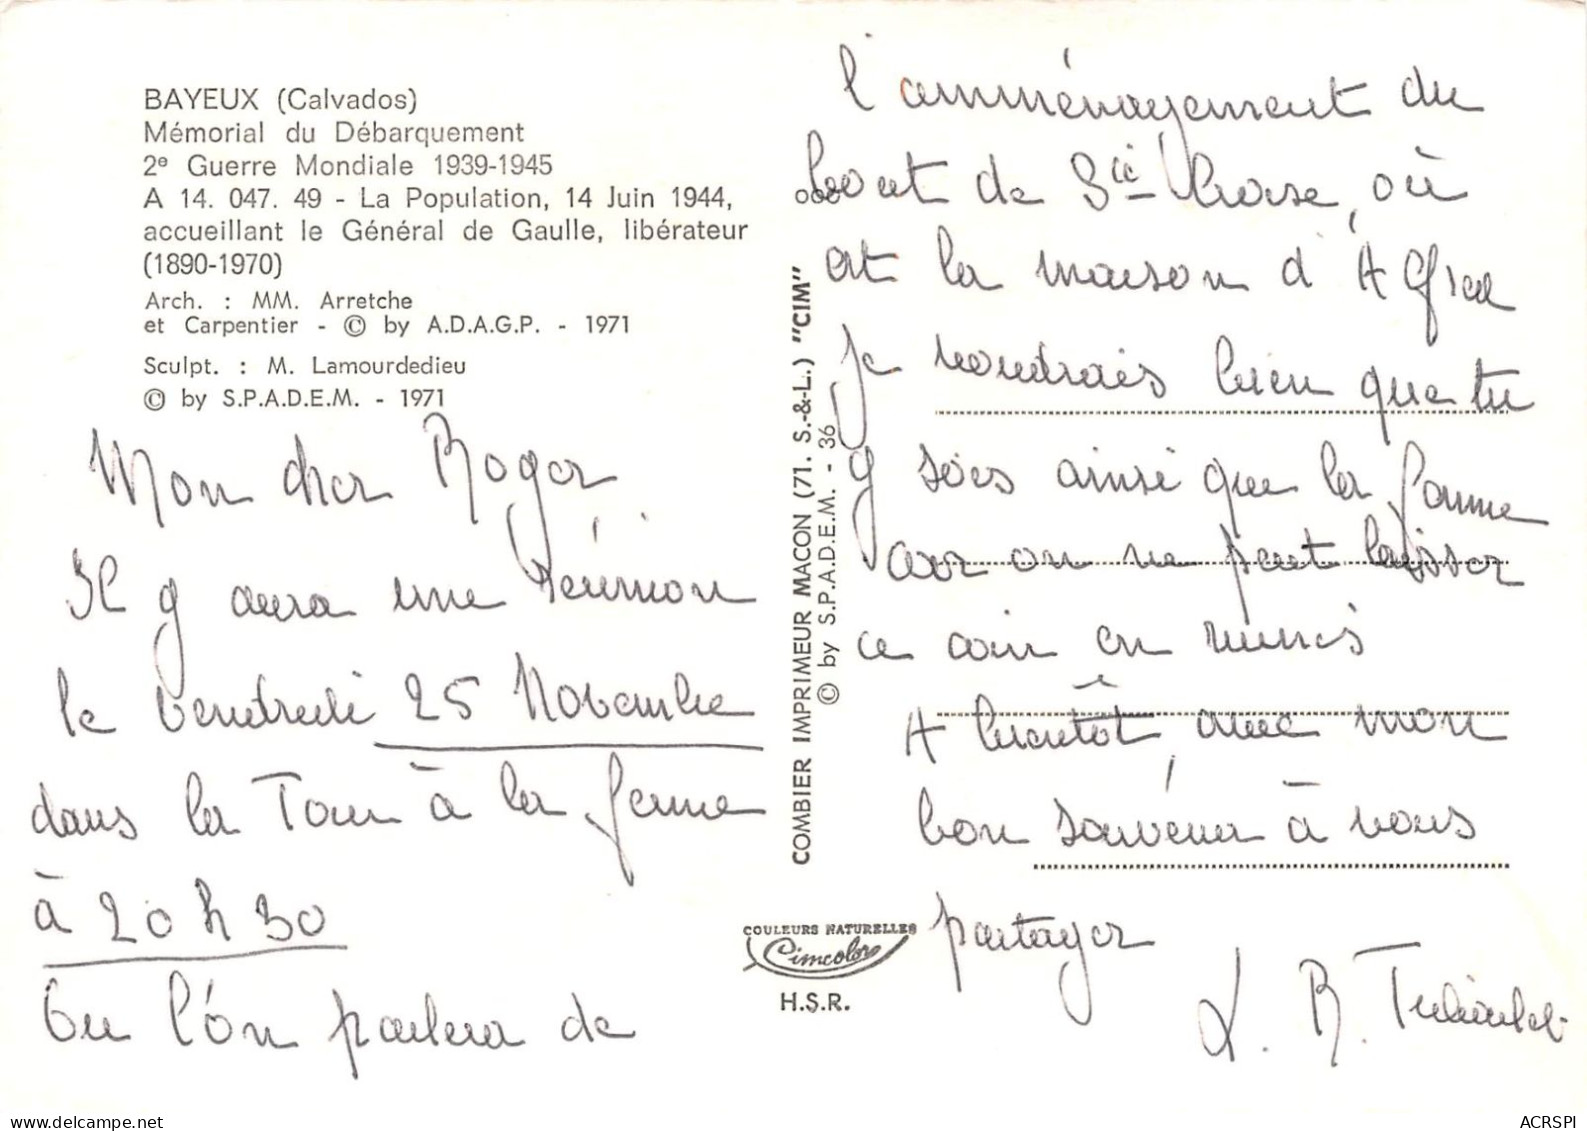 BAYEUX (Calvados)
Mémorial du Débarquement
2e Guerre Mondiale 1939-1945
A 14. 047. 49 - La Population, 14 Juin 1944,
accueillant le Général de Gaulle, libérateur
(1890-1970)
Arch. : MM. Arretche
et Carpentier - © by A.D.A.G.P. - 1971
Sculpt. : M. Lamourdedieu
© by S.P.A.D.E.M. - 1971
Mon cher Roger
Il y aura une réunion
le vendredi 25 Novembre
dans la Tour à la ferme
à 20 h 30
Ou l'on parlera de
COMBIER IMPRIMEUR MACON (71. S.-&-L.) "CIM"
© by S.P.A.D.E.M. - 36
COULEURS NATURELLES
Cimcolor
H.S.R.
l'amménagement du
bout de Ste, où
est la maison d'
Je voudrais bien que tu
y sois ainsi que la femme
car on ne peut laisser
ce coin en ruines
A bientôt, avec mon
bon souvenir à vous
partager
R.
ACRSPI